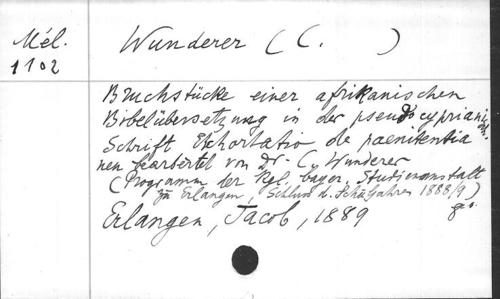 Mél.
1102
Wunderer (C. )
Bruchstücke einer afrikanischen
Bibelübersetzung in der pseudocypriani-
schen
Schrift Exhortatio de paenitentia
neu bearbeitet von Dr. C. Wunderer
(Programm der Kgl. bayer. Studienanstalt
zu Erlangen, Schluss d. Schuljahres 1888/9)
Erlangen, Jacob, 1889